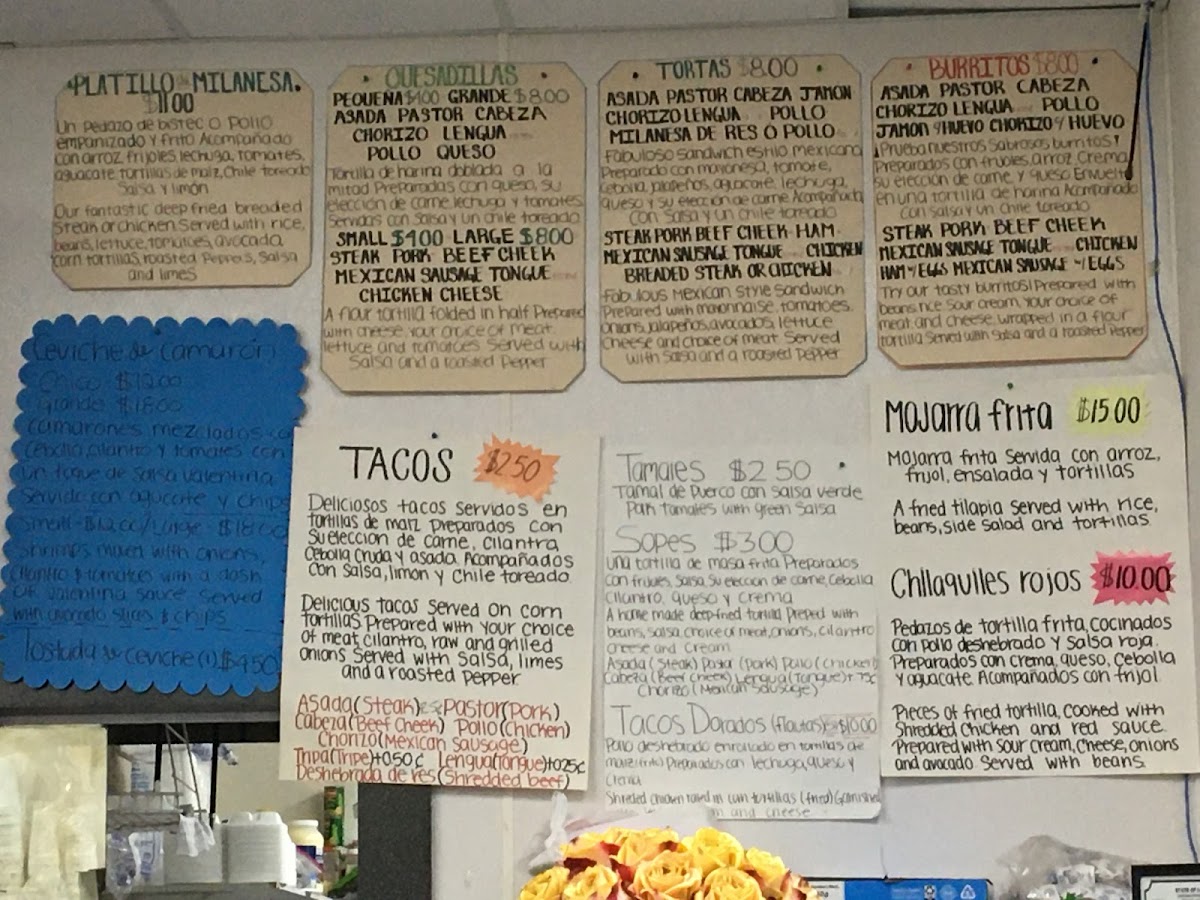 PLATILLO de MILANESA
$11.00
Un Pedazo de bistec o Pollo
empanizado y frito Acompañado
con arroz, frijoles, lechuga, tomates,
aguacate, tortillas de maíz, Chile toreado
Salsa y limón
Our fantastic deep fried breaded
Steak or chicken. Served with rice,
beans, lettuce, tomatoes, avocado
corn tortillas, roasted Peppers, Salsa
and limes
QUESADILLAS
PEQUEÑA $4.00 GRANDE $8.00
ASADA PASTOR CABEZA
CHORIZO LENGUA
POLLO QUESO
Tortilla de harina doblada a la
mitad Preparadas con queso, su
elección de carne lechuga y tomates
Servidas con Salsa y un chile toreado
SMALL $4.00 LARGE $8.00
STEAK PORK BEEF CHEEK
MEXICAN SAUSAGE TONGUE
CHICKEN CHEESE
A flour tortilla folded in half Prepared
with cheese, your choice of meat,
lettuce and tomatoes Served with
Salsa and a roasted Pepper
TORTAS $8.00
ASADA PASTOR CABEZA JAMON
CHORIZO LENGUA POLLO
MILANESA DE RES O POLLO
Fabuloso sandwich estilo mexicano
Preparado con mayonesa, tomate,
Cebolla, jalapeños, aguacate, lechuga,
queso y su elección de carne Acompañada
con Salsa y un chile toreado
STEAK PORK BEEF CHEEK HAM
MEXICAN SAUSAGE TONGUE CHICKEN
BREADED STEAK OR CHICKEN
Fabulous Mexican Style Sandwich
Prepared with mayonnaise, tomatoes,
onions, jalapeños, avocados, lettuce
Cheese and choice of meat. Served
with Salsa and a roasted Pepper
BURRITOS $8.00
ASADA PASTOR CABEZA
CHORIZO LENGUA POLLO
JAMON Y HUEVO CHORIZO Y HUEVO
¡Prueba nuestros Sabrosos burritos!
Preparados con frijoles, arroz, Crema,
su elección de carne, y queso Envuelto
en una tortilla de harina Acompañado
con Salsa y un Chile toreado
STEAK PORK BEEF CHEEK
MEXICAN SAUSAGE TONGUE CHICKEN
HAM W/EGGS MEXICAN SAUSAGE W/EGGS
Try our tasty burritos! Prepared with
beans, rice, Sour cream, your choice of
meat and cheese, wrapped in a flour
tortilla Served with Salsa and a roasted Pepper
Ceviche de camarón
Chico $12.00
Grande $18.00
Camarones mezclados co
Cebolla, cilantro y tomates con
Un toque de Salsa Valentina
Servido con aguacate y chips
Small-$12.00/Large-$18.00
Shrimps mixed with onions,
cilantro & tomatoes with a dash
of Valentina sauce. Served
with avocado slices & chips
Tostada de ceviche (1) $4.50
TACOS $2.50
Deliciosos tacos servidos en
tortillas de maiz Preparados con
Su eleccion de carne, cilantra,
Cebolla Cruda y asada. Acompañados
con Salsa, limon y Chile toreado.
Delicious tacos Served on corn
tortillas Prepared with your choice
of meat, cilantro, raw and grilled
onions Served with Salsa, limes
and a roasted Pepper
Asada(Steak) Pastor(Pork)
Cabeza(Beef Cheek) Pollo(Chicken)
Chorizo(Mexican Sausage)
Tripa(Tripe)+050¢ Lengua(Tongue)+025¢
Deshebrada de res(Shredded beef)
Tamales $2.50
Tamal de Puerco con Salsa verde
Pork tamales with green Salsa
Sopes $3.00
Una tortilla de masa frita Preparados
con frijoles, Salsa, Su eleccion de carne, Cebolla
Cilantro, queso y crema
A home made deep-fried tortilla Preped with
beans, salsa, choice of meat, onions, cilantro
Cheese and Cream
Asada(Steak) Pastor(Pork) Pollo(Chicken)
Cabeza(Beef Cheek) Lengua(Tongue)+75¢
Chorizo(Mexican Sausage)
Tacos Dorados (flautas) $10.00
Pollo deshebrado enrollado en tortillas de
maiz(frito) Preparados con lechuga, queso y
crema
Shreded chicken rolled in corn tortillas (fried) Garnished
and cheese
Mojarra frita $15.00
Mojarra frita Servida con arroz,
frijol, ensalada y tortillas
A fried tilapia served with rice,
beans, side salad and tortillas.
Chilaquiles rojos $10.00
Pedazos de tortilla frita, cocinados
con pollo deshebrado y salsa roja.
Preparados con crema, queso, Cebolla
y aguacate. Acompañados con frijol.
Pieces of fried tortilla, cooked with
Shredded Chicken and red sauce.
Prepared with sour cream, cheese, onions
and avocado Served with beans.